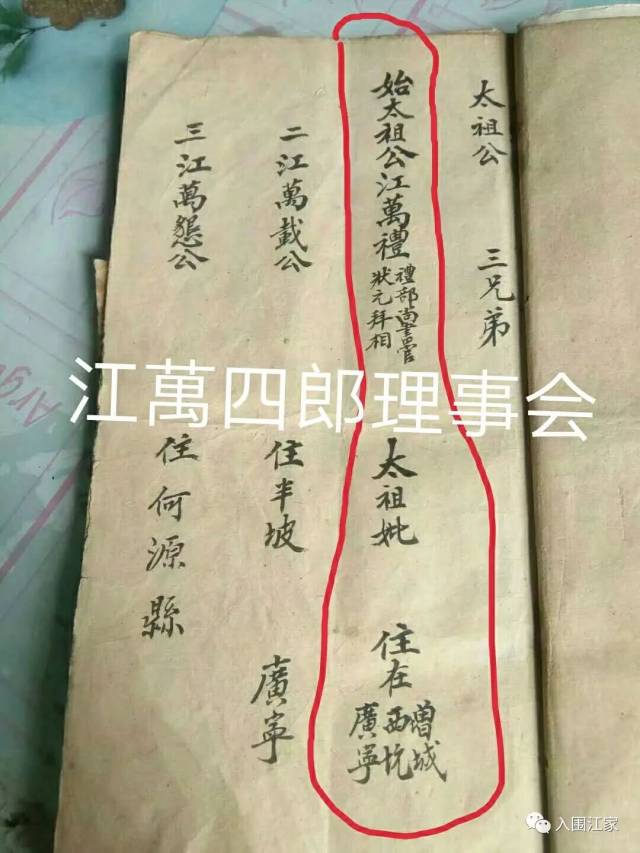 太祖公 三兄弟
始太祖公江萬禮
禮部尚書官
狀元拜相
太祖妣
住在
增城
西坑
廣寧
二江萬載公 住半坡 廣寧
三江萬懇公 住何源縣
江萬四郎理事会
入围江家